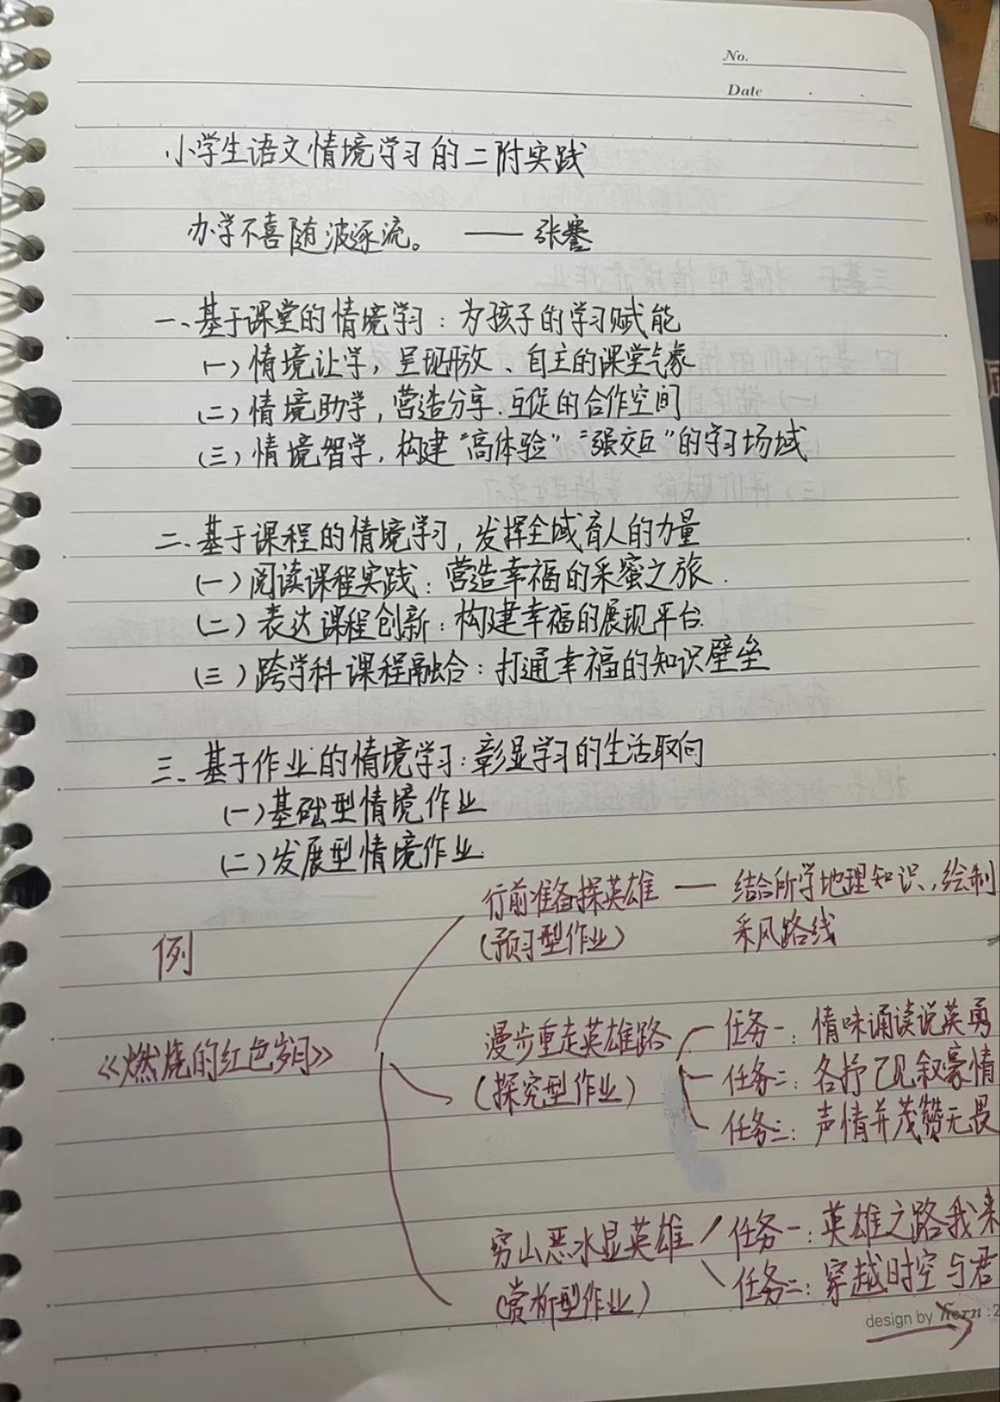 No.
Date
小学生语文情境学习的二附实践
办学不喜随波逐流。 —— 张謇
一、基于课堂的情境学习：为孩子的学习赋能
(一)情境让学，呈现开放、自主的课堂气象
(二)情境助学，营造分享.互促的合作空间
(三)情境智学，构建“高体验”“强交互”的学习场域
二、基于课程的情境学习，发挥全域育人的力量
(一)阅读课程实践：营造幸福的采蜜之旅.
(二)表达课程创新：构建幸福的展现平台.
(三)跨学科课程融合：打通幸福的知识壁垒
三、基于作业的情境学习：彰显学习的生活取向
(一)基础型情境作业
(二)发展型情境作业
例
《燃烧的红色岁月》
行前准备探英雄 — 结合所学地理知识，绘制
(预习型作业) 采风路线
漫步重走英雄路
(探究型作业)
任务一：情味诵读说英勇
任务二：各抒己见叙豪情
任务三：声情并茂赞无畏
穷山恶水显英雄
(赏析型作业)
任务一：英雄之路我来
任务二：穿越时空与君
design by